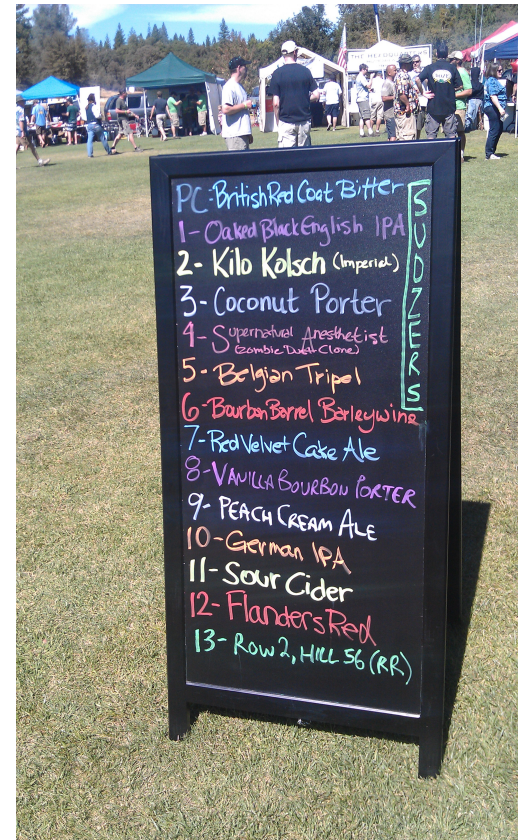 THE HEADQUARTERS
SUDZERS
PC-British Red Coat Bitter
1- Oaked Black English IPA
2- Kilo Kolsch (Imperial)
3- Coconut Porter
4- Supernatural Anesthetist
(Zombie Dust Clone)
5- Belgian Tripel
6- Bourbon Barrel Barleywine
7- Red Velvet Cake Ale
8- VANILLA BOURBON PORTER
9- PEACH CREAM ALE
10- German IPA
11- Sour Cider
12- Flanders Red
13- Row 2, HILL 56 (RR)